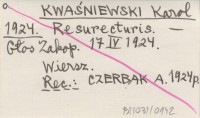 KWAŚNIEWSKI Karol
1924. Resurecturis. —
Głos Zakop. 17 IV 1924.
Wiersz.
Rec.: CZERBAK A. 1924p.